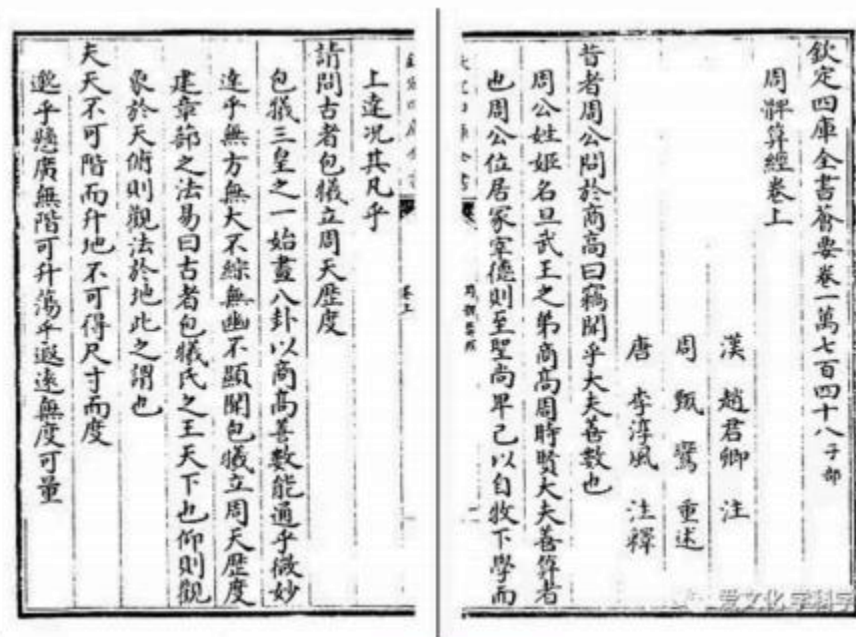 欽定四庫全書薈要卷一萬七百四十八子部
周髀算經卷上
漢 趙君卿 注
周 甄鸞 重述
唐 李淳風 注釋
昔者周公問於商高曰竊聞乎大夫善數也
周公姓姬名旦武王之弟商高周時賢大夫善算者
也周公位居冢宰德則至聖尚卑己以自牧下學而
卷上
上達況其凡乎
請問古者包犧立周天歷度
包犧三皇之一始畫八卦以商高善數能通乎微妙
達乎無方無大不綜無幽不顯聞包犧立周天歷度
建章蔀之法易曰古者包犧氏之王天下也仰則觀
象於天俯則觀法於地此之謂也
夫天不可階而升地不可得尺寸而度
邈乎懸廣無階可升蕩乎遐遠無度可量
爱文化学科学